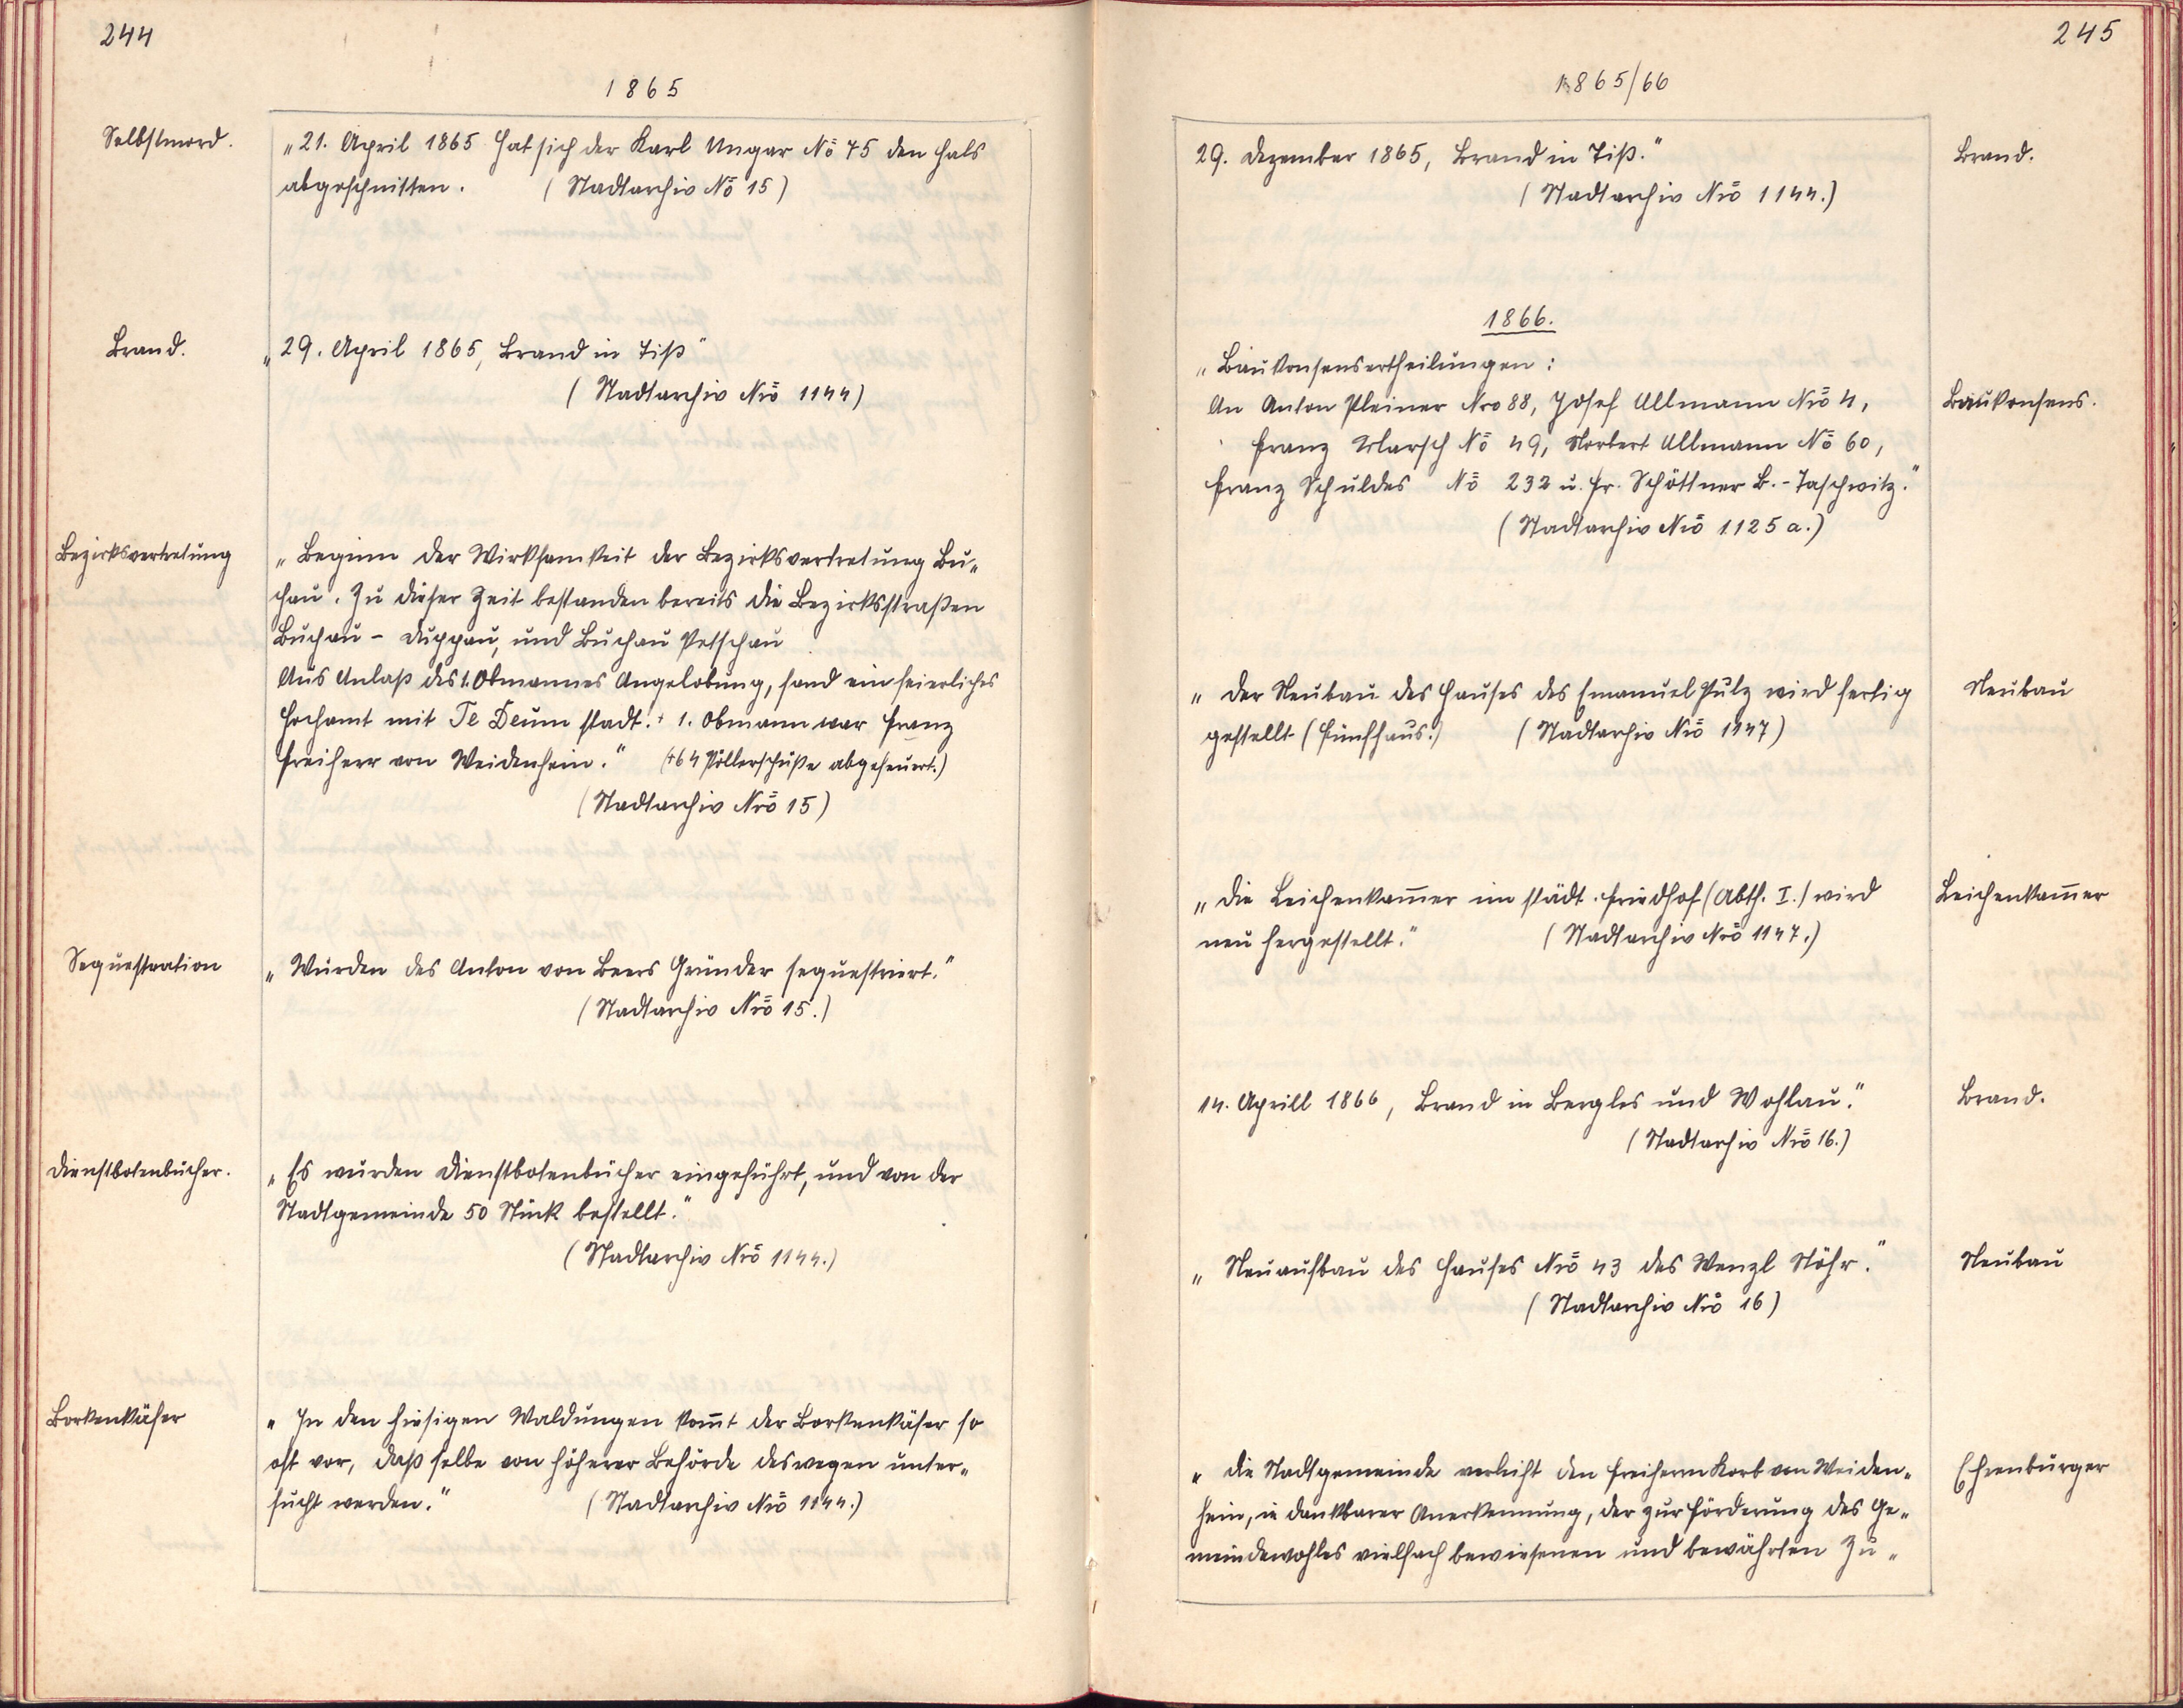 244
1865
Selbstmord.
„21. April 1865 hat sich der Karl Ungar No 75 den Hals
abgeschnitten. (Stadtarchiv No 15)
Brand.
„29. April 1865, Brand in Tiß"
(Stadtarchiv Nro 1144)
Bezirksvertretung
„Beginn der Wirksamkeit der Bezirksvertretung Bu„
chau. Zu dieser Zeit bestanden bereits die Bezirksstraßen
Buchau - Duppau, und Buchau Petschau
Aus Anlaß des 1. Obmannes Angelobung, fand ein feierliches
Hochamt mit Te Deum statt. + 1. Obmann war Franz
Freiherr von Weidenhein." (+64 Pöllerschüße abgefeuert.)
(Stadtarchiv Nro 15)
Sequestration
„Wurden des Anton von Beers Gründer sequestriert."
(Stadtarchiv Nro 15.)
Dienstbotenbücher.
„Es wurden Dienstbotenbücher eingeführt, und von der
Stadtgemeinde 50 Stück bestellt."
(Stadtarchiv Nro 1144.)
Borkenkäfer
„In den hiesigen Waldungen kom̄t der Borkenkäfer so
oft vor, daß selbe von höherer Behörde deswegen unter„
sucht werden." (Stadtarchiv Nro 1144.)
245
1865/66
29. Dezember 1865, Brand in Tiß."
Brand.
(Stadtarchiv Nro 1144.)
1866.
„Baukonsensertheilungen:
An Anton Pleiner Nro 88, Josef Ullmann Nro 4,
Baukonsens.
Franz Marsch No 49, Norbert Ullmann No 60,
Franz Schuldes No 232 u. Fr. Schöttner B.-Taschwitz."
(Stadtarchiv Nro 1125 a.)
„Der Neubau des Hauses des Emanuel Pulz wird fertig
Neubau
gestellt (Fünfhaus.) (Stadtarchiv Nro 1147)
„Die Leichenkam̄er im städt. Friedhof (Abth. I.) wird
Leichenkam̄er
neu hergestellt." (Stadtarchiv Nro 1147.)
14. Aprill 1866, Brand in Bergles und Wohlau."
Brand.
(Stadtarchiv Nro 16.)
„Neuaufbau des Hauses Nro 43 des Wenzl Stöhr."
Neubau
(Stadtarchiv Nro 16)
„Die Stadtgemeinde verleiht den Freiherrn Korb von Weiden„
Ehrenbürger
hein, in dankbarer Anerkennung, der zur Förderung des Ge„
meindewohles vielfach bewiesenen und bewährten Zu„